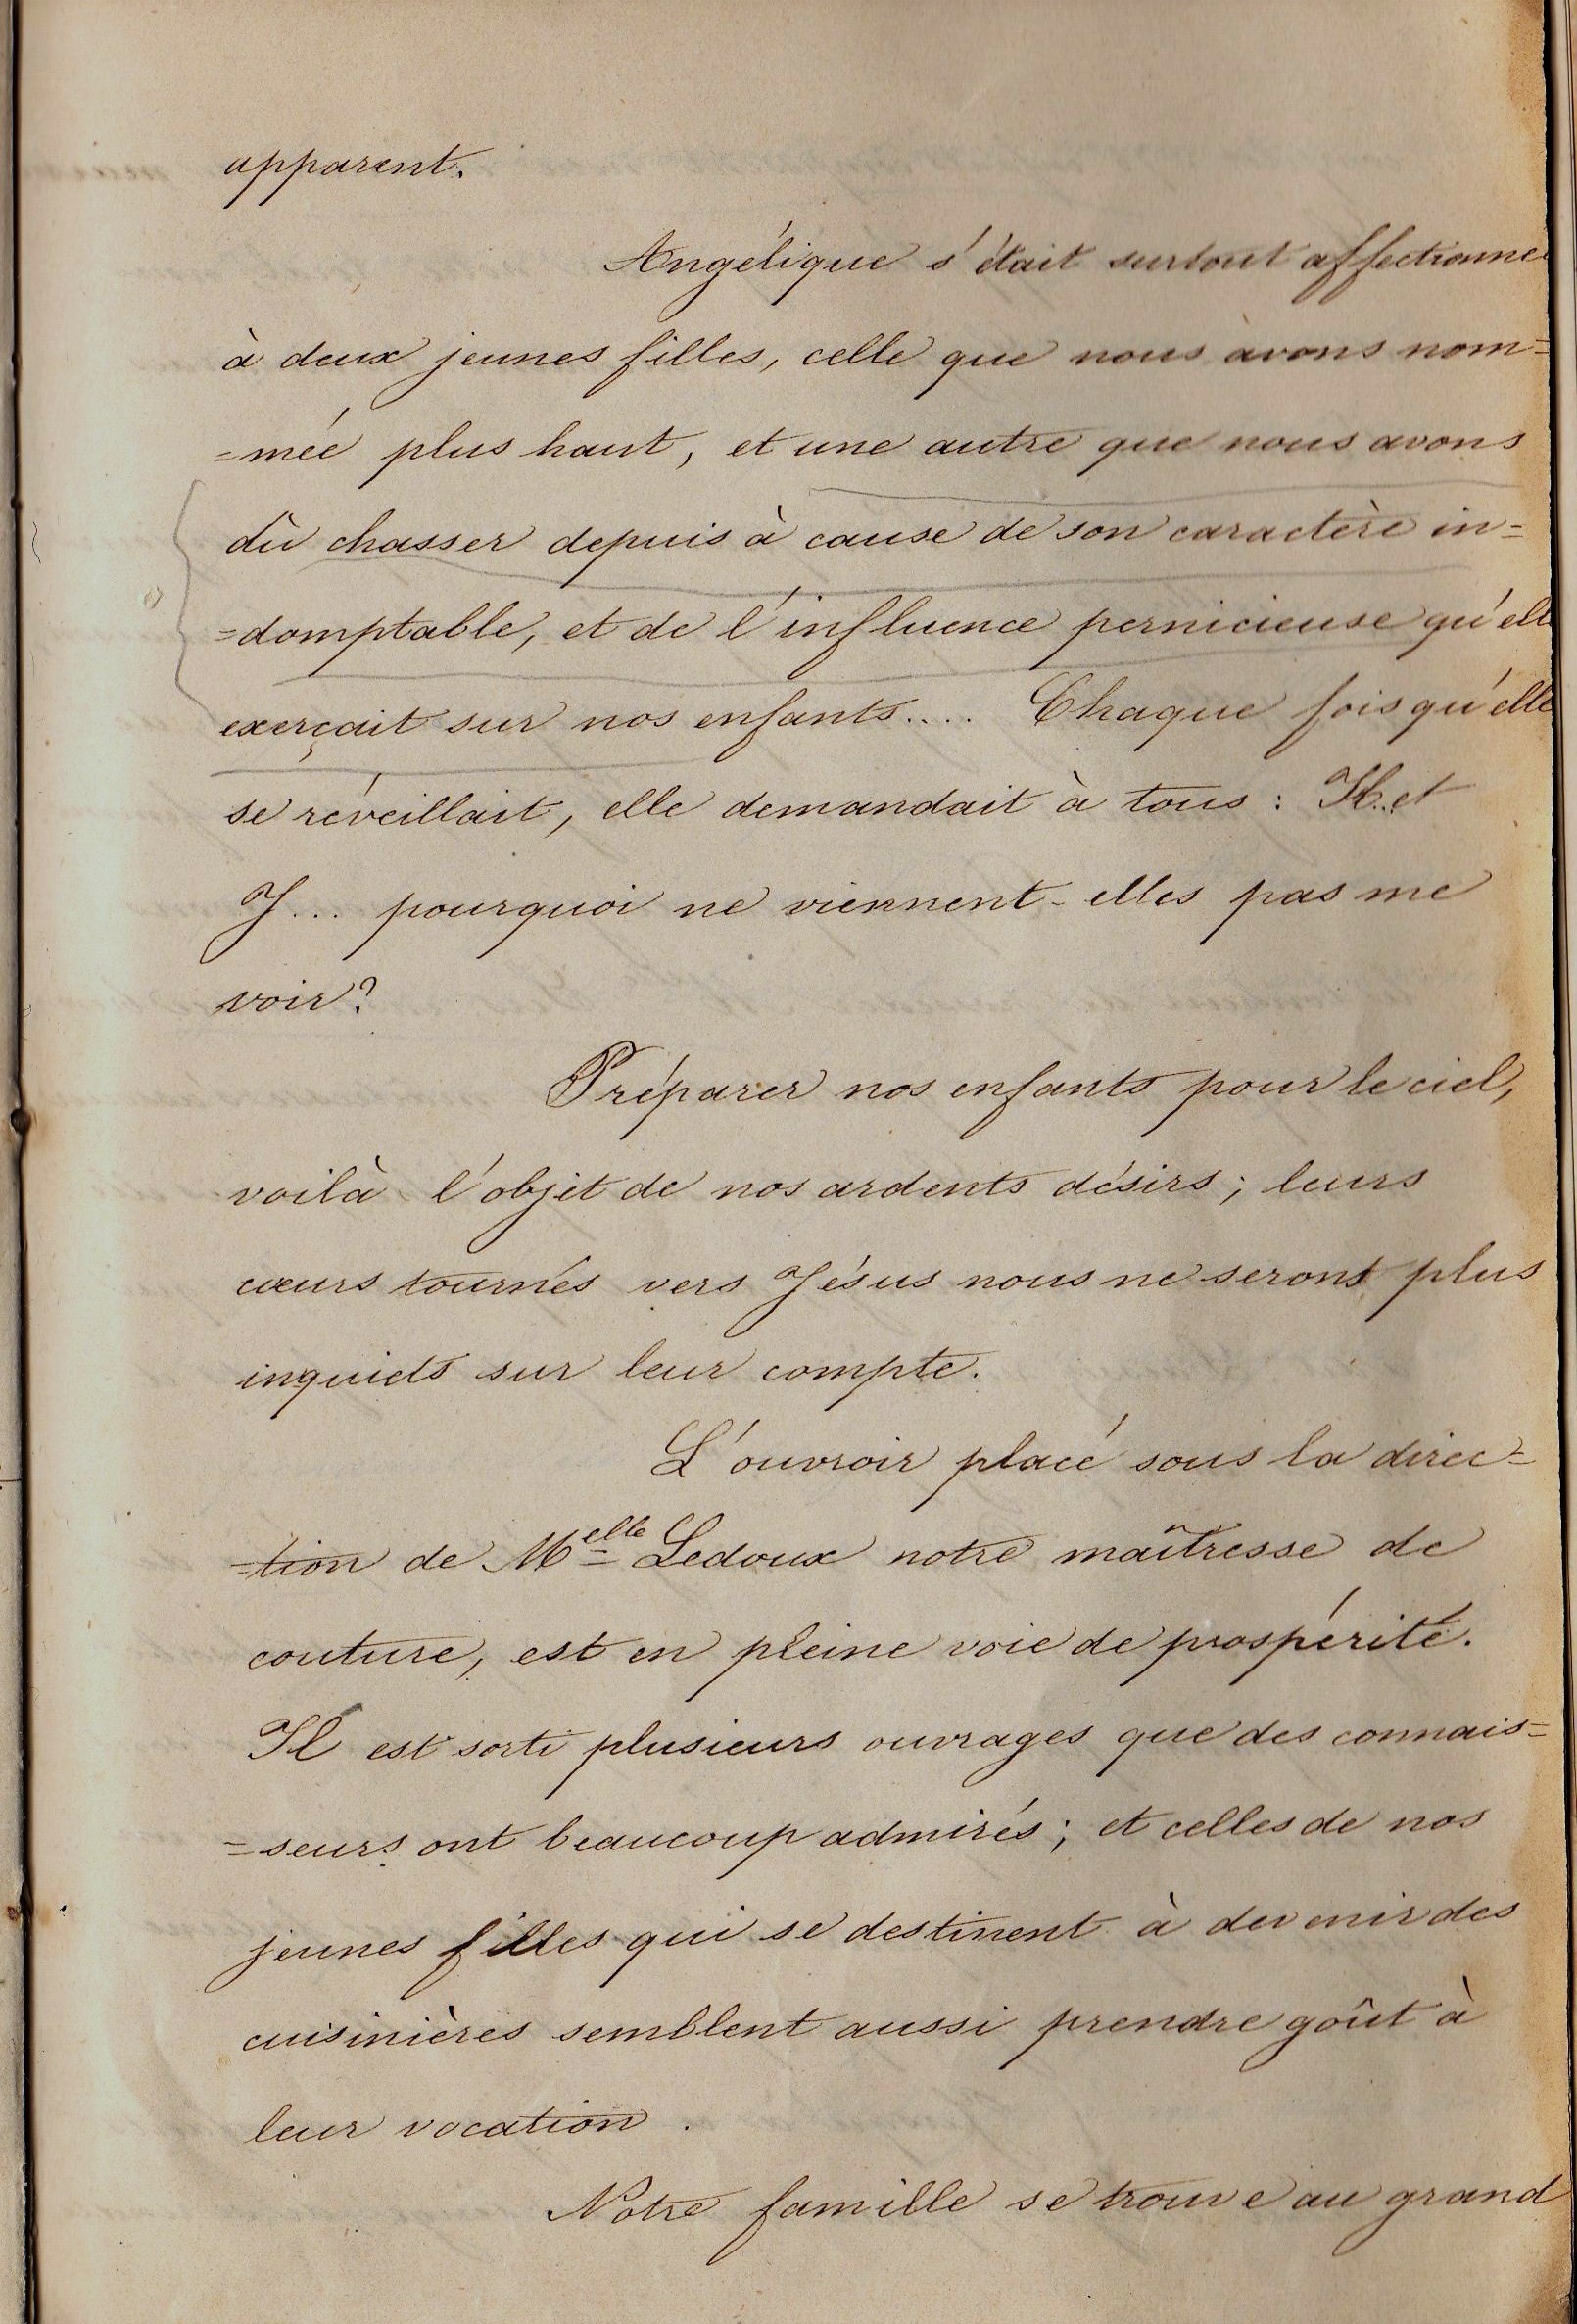 apparent.
Angélique s'était surtout affectionnée
à deux jeunes filles, celle que nous avons nom=
=mée plus haut, et une autre que nous avons
dû chasser depuis à cause de son caractère in=
=domptable, et de l'influence pernicieuse qu'elle
exerçait sur nos enfants.... Chaque fois qu'elle
se réveillait, elle demandait à tous : H.. et
J... pourquoi ne viennent-elles pas me
voir?
Préparer nos enfants pour le ciel,
voilà l'objet de nos ardents désirs ; leurs
cœurs tournés vers Jésus nous ne serons plus
inquiets sur leur compte.
L'ouvroir placé sous la direc=
=tion de Melle Ledoux notre maîtresse de
couture, est en pleine voie de prospérité.
Il est sorti plusieurs ouvrages que des connais=
=seurs ont beaucoup admirés ; et celles de nos
jeunes filles qui se destinent à devenir des
cuisinières semblent aussi prendre goût à
leur vocation.
Notre famille se trouve au grand